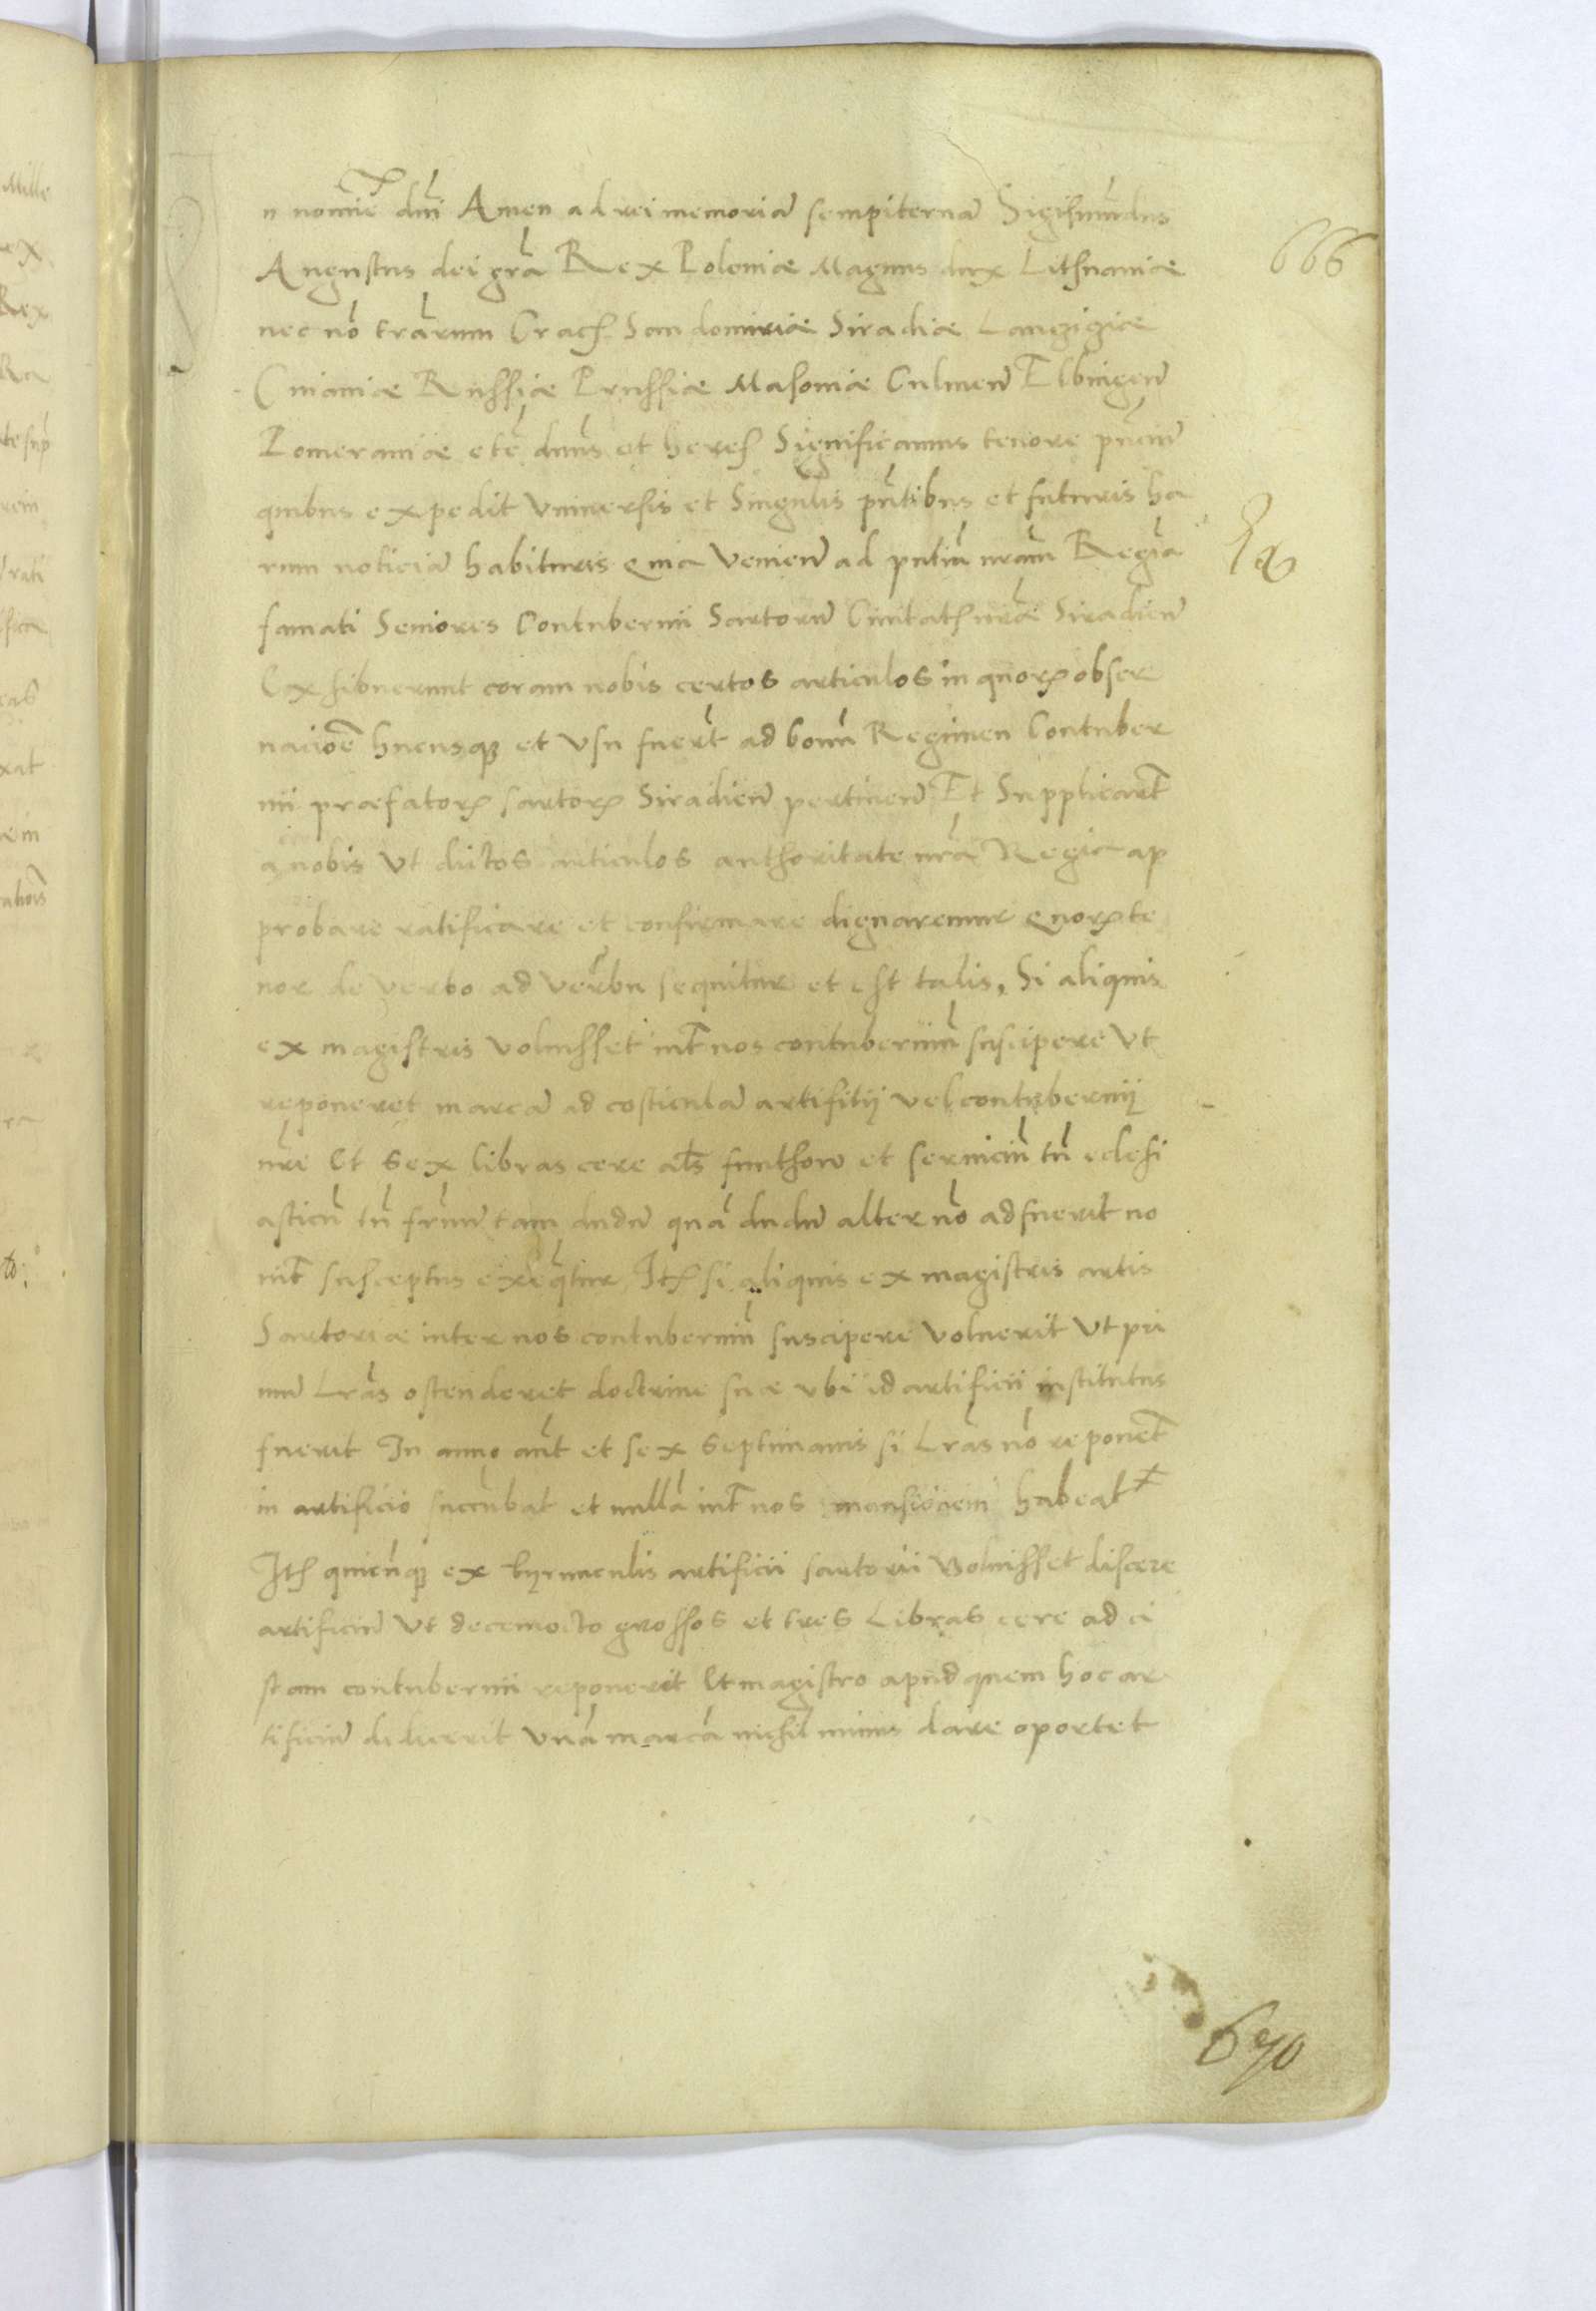 n nomiē dn̄i Amen ad rei memoriā sempiternā Sigismūdus
666
Augustus dei grā Rex Poloniæ Magnus dux Lithuaniæ
nec nō trārum Crach Sandomiriæ Siradiæ Lanzigiæ
Cuiaviæ Russiæ Prussiæ Masoviæ Culmen̄ Elbingen̄
Pomeraniæ etē dnn̄s et heres Significamus tenore pn̄ciū
quibus expedit Vniversis et Singulis pn̄tibus et futuris ha
rum noticiā habituris Quia Venien̄ ad pn̄tiā nrām Regiā
famati Seniores Contubernii Sartorū Civitatis nrāe Siradien̄
Exhibuerunt coram nobis certos articulos in quorꝝ obser
vaciōē hucusqꝫ et Vsu fuerūt ad bonū Regimen Contuber
nii præfatorꝝ sartorꝝ Siradien̄ pertinen̄ Et Supplicarūt
a nobis Vt dictos articulos authoritate nrā Regia ap
probare ratificare et confirmare dignaremur Quorꝝ te
nor de verbo ad verbū sequitur et est talis, Si aliquis
ex magistris voluisset int̄ nos contuberniū suscipere Vt
reponeret marcā ad costiculā artifitij vel contubernij
nrē Et sex libras cere als funthow et serviciū tn̄ eclesi
asticū tn̄ frūm tam dudū quā dudū alter nō adfuerit no
vit̄ susceptus exeqtur, Ith si aliquis ex magistris artis
Sartoriæ inter nos contuberniū suscipere Voluerit Vt pri
mū Lrās ostenderet doctrine suæ vbi id artificii institutus
fuerit In anno aut̄ et sex Septimanis si Lrās nō reponet̄
in artificio succūbat et nullā int̄ nos mansiōem habeat
Ith quicūqꝫ ex tyrunculis artificii sartorii Voluisset discere
artificiū Vt decemocto grossos et tres Libras cere ad ci
stam contubernii reponerit Et magistro apud quem hoc ar
tificiū didicerit Vnā marcā nichil minus dare oportet
670